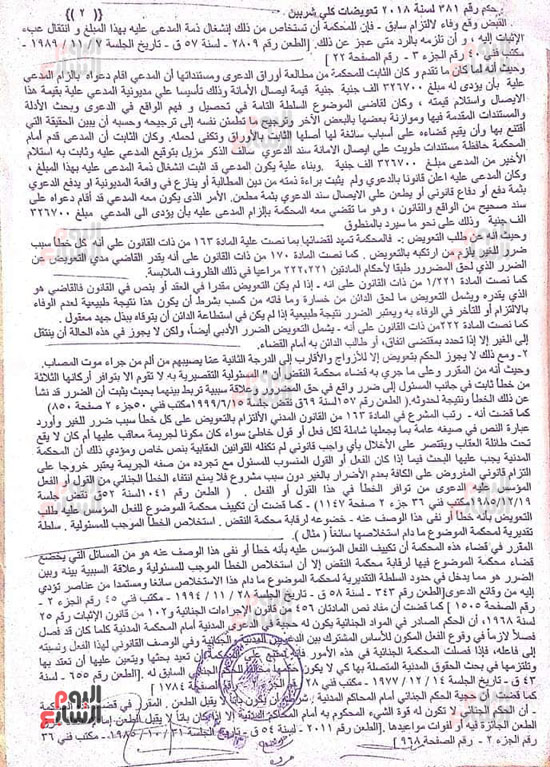 حكم رقم ٣٨١ لسنة ٢٠١٨ تعويضات كلي شربين ( ٢ )
القبض وقع وفاء لالتزام سابق - فإن للمحكمة أن تستخلص من ذلك إنشغال ذمة المدعى عليه بهذا المبلغ و انتقال عبء
الإثبات إليه ، و أن تلزمه بالرد متى عجز عن ذلك. [الطعن رقم ٢٨٠٩ - لسنة ٥٧ ق - تاريخ الجلسة ١٩٨٩
مكتب فني ٤٠ رقم الجزء ٣ - رقم الصفحة ٢٢]
وحيث أنه لما كان ما تقدم و كان الثابت للمحكمة من مطالعة أوراق الدعوى ومستنداتها أن المدعي اقام دعواه بالزام المدعي
عليه بأن يؤدى له مبلغ ٣٢٦٧٠٠ جنية قيمة ايصال الأمانة وذلك تأسيسا علي مديونية المدعي علية بقيمة هذا
الايصال واستلام قيمته ، وكان لقاضي الموضوع السلطة التامة في تحصيل و فهم الواقع في الدعوى وبحث الأدلة
والمستندات المقدمة فيها وموازنة بعضها بالبعض الآخر وترجيح ما تطمئن نفسه إلى ترجيحه وحسبه أن يبين الحقيقة التي
أقتنع بها وأن يقيم قضاءه على أسباب سائغة لها أصلها الثابت بالأوراق وتكفى لحمله. وكان الثابت أن المدعي قدم أمام
المحكمة حافظة مستندات طويت علي ايصال الامانة سند الدعوي سالف الذكر مزيل بتوقيع المدعي عليه وثابت به استلام
الأخير من المدعى مبلغ ٣٢٦٧٠٠ الف جنية . وبناء علية يكون المدعى قد اثبت انشغال ذمة المدعى عليه بهذا المبلغ ،
وكان المدعى عليه اعلن قانونا بالدعوي ولم يثبت براءة ذمته من دين المطالبة أو ينازع في واقعة المديونية او يدفع الدعوي
بثمة دفع أو دفاع قانوني أو يطعن علي الايصال سند الدعوي بثمة مطعن. الأمر الذى يكون معه المدعي قد أقام دعواه على
سند صحيح من الواقع والقانون ، وهو ما تقضي معه المحكمة بإلزام المدعي عليه بأن يؤدى الى المدعي مبلغ ٣٢٦٧٠٠
الف جنية وذلك على نحو ما سيرد بالمنطوق
وحيث أنه عن طلب التعويض :- فالمحكمة تمهد لقضائها بما نصت علية المادة ١٦٣ من ذات القانون علي أنه كل خطأ سبب
ضرر للغير يلزم من ارتكبه بالتعويض . كما نصت المادة ١٧٠ من ذات القانون على أنه يقدر القاضي مدي التعويض عن
الضرر الذي لحق المضرور طبقا لأحكام المادتين ٢٢٢،٢٢١ مراعيا في ذلك الظروف الملابسة.
كما نصت المادة ١/٢٢١ من ذات القانون على انه - إذا لم يكن التعويض مقدرا في العقد أو بنص في القانون فالقاضي هو
الذي يقدره ويشمل التعويض ما لحق الدائن من خسارة وما فاته من كسب بشرط أن يكون هذا نتيجة طبيعية لعدم الوفاء
بالالتزام أو التأخر في الوفاء به ويعتبر الضرر نتيجة طبيعية إذا لم يكن في استطاعة الدائن أن يتوقاه ببذل جهد معقول .
كما نصت المادة ٢٢٢ من ذات القانون على أنه - يشمل التعويض الضرر الأدبي أيضاً، ولكن لا يجوز في هذه الحالة أن ينتقل
إلى الغير إلا إذا تحدد بمقتضي اتفاق، أو طالب الدائن به أمام القضاء.
٢ - ومع ذلك لا يجوز الحكم بتعويض إلا للأزواج والأقارب إلى الدرجة الثانية عما يصيبهم من ألم من جراء موت المصاب.
وحيث أنه من المقرر وعلى ما جري به قضاء محكمة النقض أن " المسئولية التقصيرية به لا تقوم إلا بتوافر أركانها الثلاثة
من خطأ ثابت في جانب المسئول إلى ضرر واقع في حق المضرور وعلاقة سببية تربط بينهما بحيث يثبت أن الضرر قد نشأ
عن ذلك الخطأ ونتيجة لحدوثه. ( الطعن رقم ١٥٧ لسنة ٦٩ق نقض جلسة ١٩٩٩/٦/١٥ مكتب فني ٥٠ جزء ٢ صفحة ٨٥٠ )
كما قضت أنه - رتب المشرع في المادة ١٦٣ من القانون المدني الألتزام بالتعويض على كل خطأ سبب ضرر للغير وأورد
عبارة النص في صيغه عامة بما يجعلها شاملة لكل فعل أو قول خاطئ سواء كان مكونا لجريمة معاقب عليها أم كان لا يقع
تحت طائلة العقاب ويقتصر على الأخلال بأي واجب قانوني لم تكفله القوانين العقابية بنص خاص ومؤدي ذلك أن المحكمة
المدنية يجب عليها البحث فيما إذا كان الفعل أو القول المنسوب للمسئول مع تجرده من صفه الجريمة يعتبر خروجا على
التزام قانوني المفروض على الكافة بعدم الأضرار بالغير دون سبب مشروع فلا يمنع انتفاء الخطأ الجنائي من القول أو الفعل
المؤسس عليه الدعوى من توافر الخطأ في هذا القول أو الفعل . ( الطعن رقم ١٠٤١ لسنة ٥٢ق نقض جلسة
١٩٨٥/١٢/١٩ مكتب فني ٣٦ جزء ٢ صفحة ١١٤٧ ) - كما قضت أن تكييف محكمة الموضوع للفعل المؤسس عليه طلب
التعويض بأنه خطأ أو نفى هذا الوصف عنه - خضوعه لرقابة محكمة النقض . استخلاص الخطأ الموجب للمسئولية . سلطة
تقديرية لمحكمة الموضوع ما دام استخلاصها سانغا ( مثال ) .
المقرر في قضاء هذه المحكمة أن تكييف الفعل المؤسس عليه بأنه خطأ أو نفى هذا الوصف عنه هو من المسائل التي يخضع
قضاء محكمة الموضوع فيها لرقابة محكمة النقض إلا أن استخلاص الخطأ الموجب للمسئولية وعلاقة السببية بينه وبين
الضرر هو مما يدخل في حدود السلطة التقديرية لمحكمة الموضوع ما دام هذا الاستخلاص سانغا ومستمدا من عناصر تؤدي
إليه من وقائع الدعوى. [الطعن رقم ٣٤٢ - لسنة ٥٨ ق - تاريخ الجلسة ١٩٩٤ / ١١ / ٢٠ - مكتب فني ٤٥ رقم الجزء ٢ -
رقم الصفحة ١٠٠٥ ] كما قضت أن مفاد نص المادتان ٤٥٦ من قانون الإجراءات الجنائية و ١٠٢ من قانون الإثبات رقم ٢٥
لسنة ١٩٦٨، أن الحكم الصادر في المواد الجنائية يكون له حجية في الدعوى المدنية أمام المحكمة المدنية كلما كان قد فصل
فصلاً لازماً في وقوع الفعل المكون للأساس المشترك بين الدعويين المدنية والجنائية وفي الوصف القانوني لهذا الفعل ونسبته
إلى فاعله، فإذا فصلت المحكمة الجنائية في هذه الأمور فإنه تمتنع على المحكمة المدنية أن تعيد بحثها ويتعين عليها أن تعتد بها
وتلتزمها في بحث الحقوق المدنية المتصلة بها كي لا يكون حكمها مخالفاً للحكم الجنائي السابق له . [الطعن رقم ٦٥٥ - لسنة
٤٣ ق - تاريخ الجلسة ١٤ / ١٢ / ١٩٧٧ - مكتب فني ٢٨ رقم الجزء ٢ - رقم الصفحة ١٧٨٤ ]
كما قضت أن حجية الحكم الجنائي أمام المحاكم المدنية . شرطه أن يكون باتاً لا يقبل الطعن . المقرر في قضاء هذه المحكمة
- أن الحكم الجنائي لا تكون له قوة الشيء المحكوم به أمام المحاكم المدنية إلا إذا كان باتاً لا يقبل الطعن إما لاستنفاد طرق
الطعن الجائزة فيه أو لفوات مواعيدها. [الطعن رقم ٢٠١١ - لسنة ٥٤ ق - تاريخ الجلسة ٣١ / ١٠ / ١٩٨٥ - مكتب فني ٣٦
رقم الجزء ٢ - رقم الصفحة ٩٦٨]
اليوم السابع